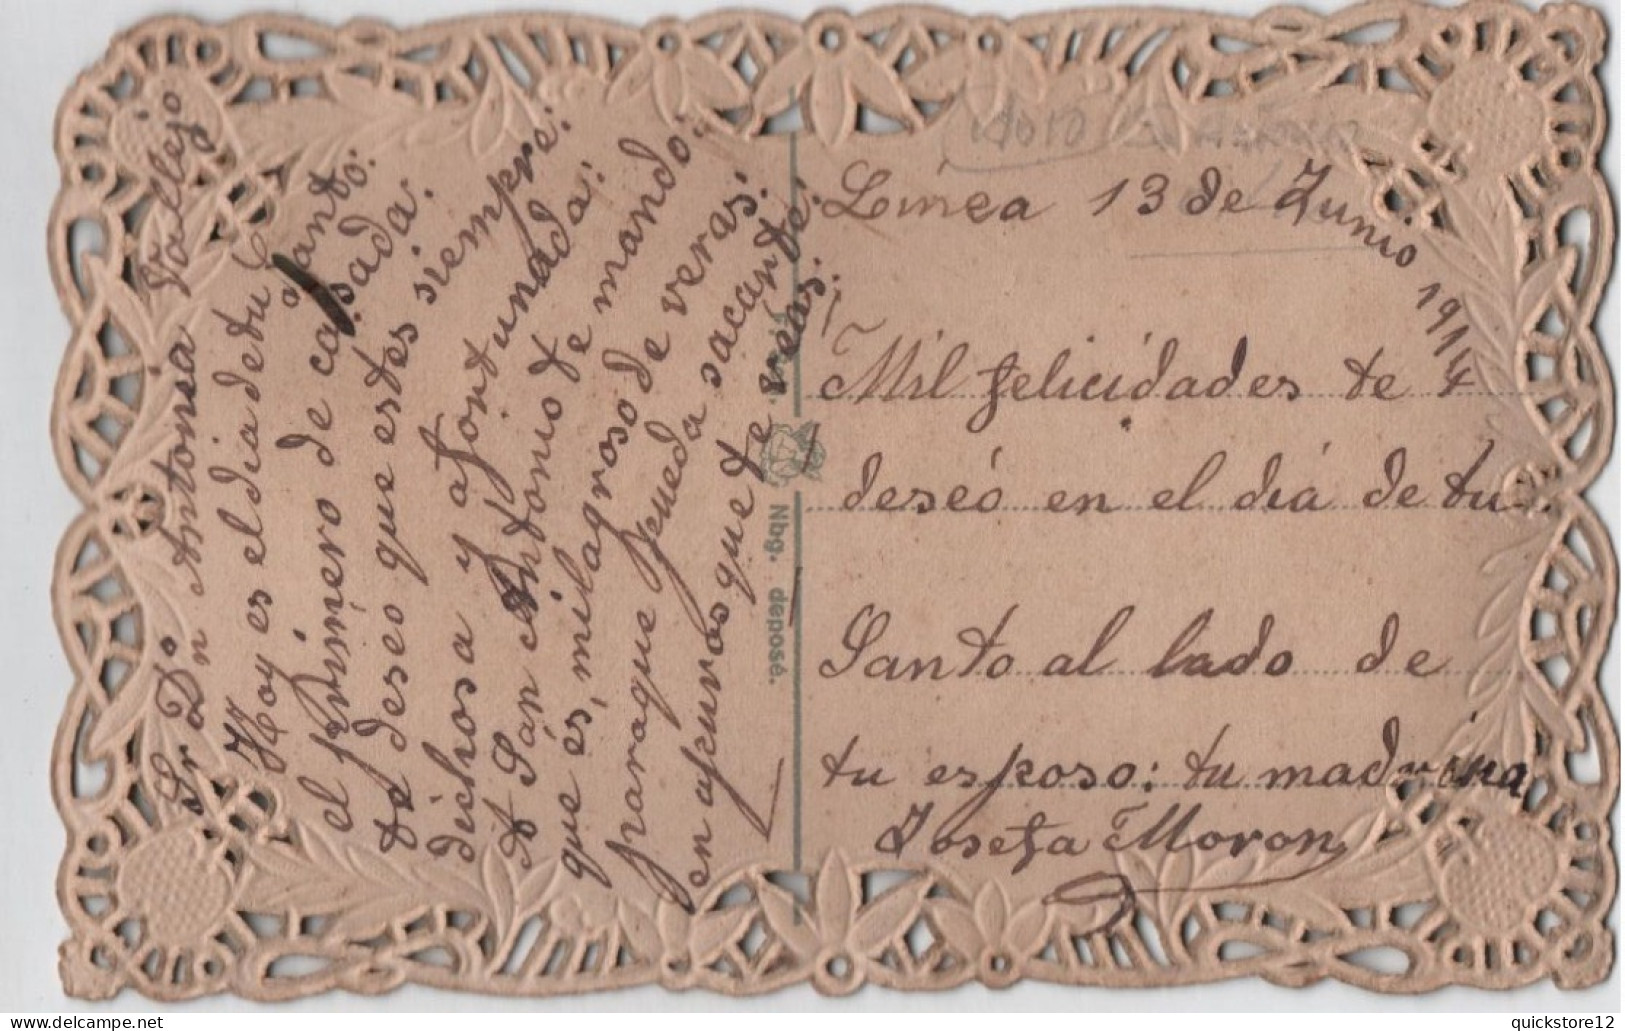 Línea 13 de Junio 1914
Mil felicidades te
deseó en el diá de tu
Santo al lado de
tu esposo: tu madrina
Josefa Moron
Sra Dn Antonia Vallejo
Hoy es el dia de tu Santo:
el primero de casada.
te deseo que estes siempre:
dichosa y afortunada:
A San Antonio te mando:
que es, milagroso de veras:
paraque pueda sacarte:
en apuros que te veas:
Nbg. deposse.
quickstore12